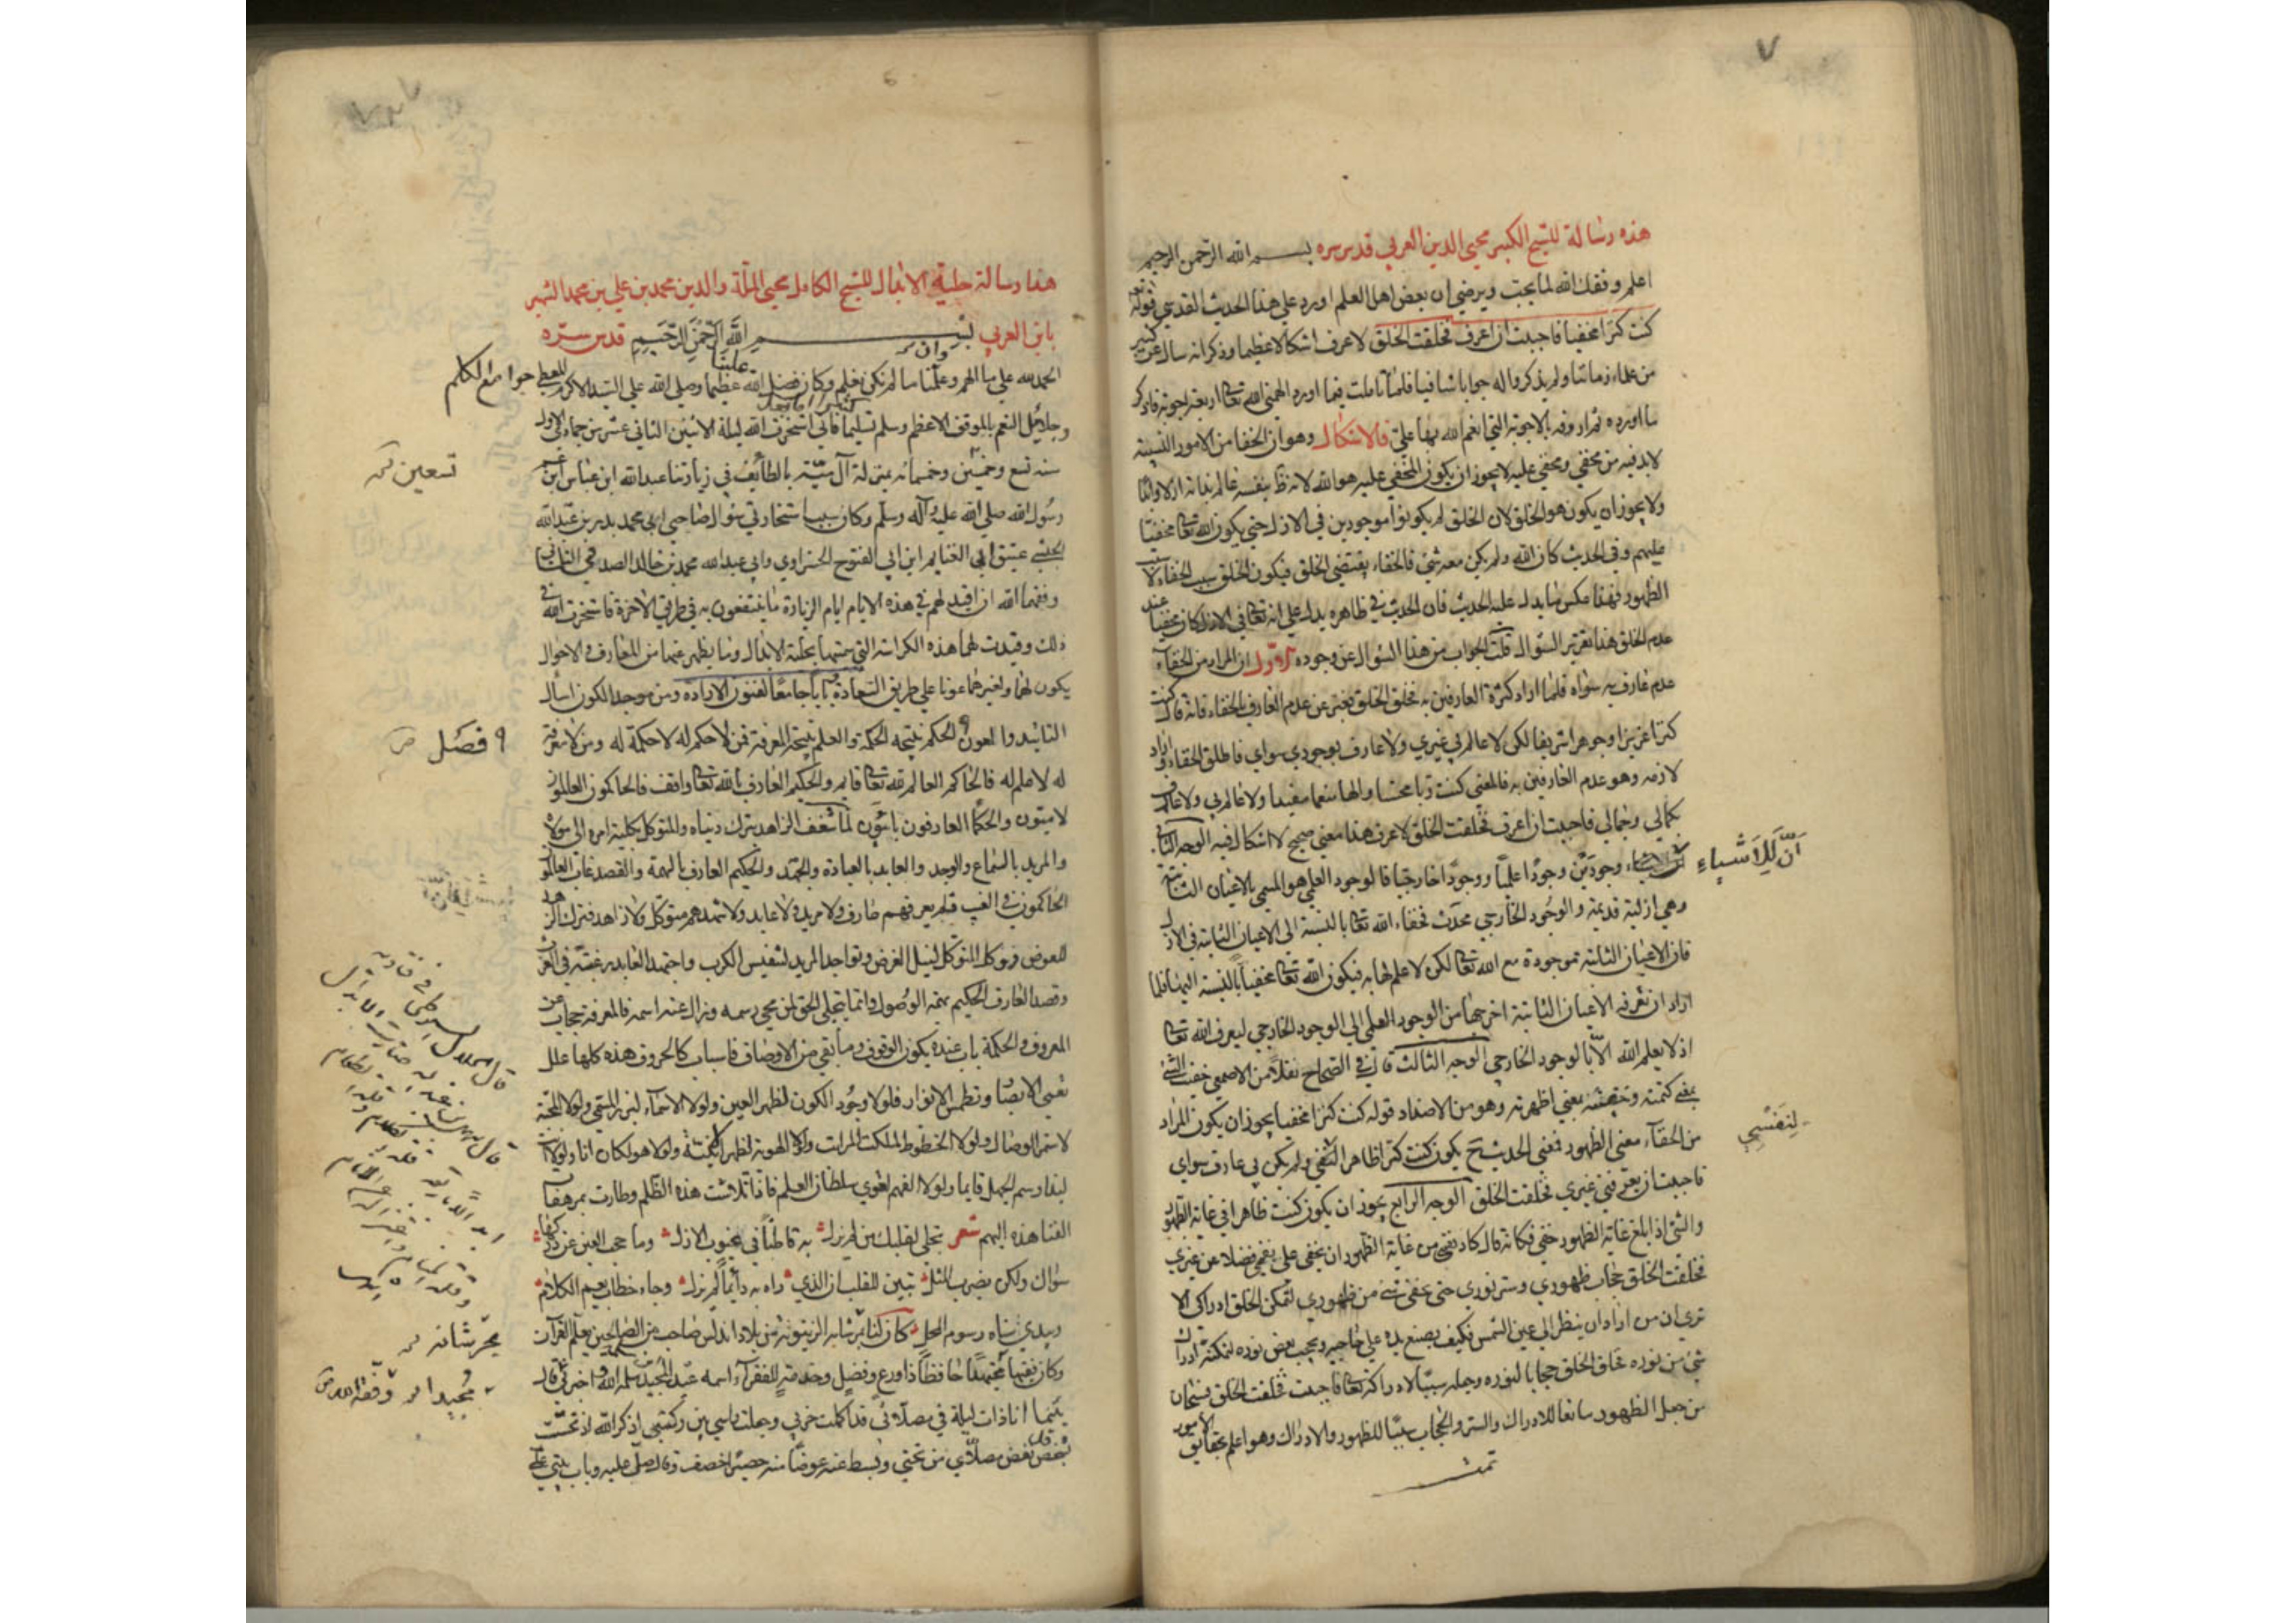 ٧
هذه رسالة للشيخ الكبير محيي الدين العربي قدس سره بسم الله الرحمن الرحيم
اعلم وفقك الله لما يحب ويرضي ان بعض اهل العلم اورد علي هذا الحديث القدسي قوله تعم
كنت كنزا مخفيا فاحببت ان اعرف فخلقت الخلق لاعرف اشكالا عظيما وذكر انه سال عن كثير
من علماء زماننا ولم يذكروا له جوابا شافيا فلما تاملت فيما اورد الهمني الله تعا اربعة اجوبة فاذكر
ما اورده ثم اردفه بالاجوبة التي انعم الله بها علي فالاشكال وهو ان الخفا من الامور النسبية
لابد فيه من مخفي ومخفي عليه لا يجوز ان يكون المخفي عليه هو الله لانه تعا بنفسه عالم بذاته ازلا وابدا
ولا يجوز ان يكون هو الخلق لان الخلق لم يكونوا موجودين في الازل حتي يكون الله تعا مخفيا
عليهم وفي الحديث كان الله ولم يكن معه شئ فالخفاء يقتضي الخلق فيكون الخلق سبب الخفاء لا سبب
الظهور فهذا عكس ما يدل عليه الحديث فان الحديث في ظاهره يدل علي انه تعا في الازل كان مخفيا عند
عدم الخلق هذا تقرير السؤال قلت الجواب من هذا السؤال عن وجوه الاول ان المراد من الخفاء
عدم عارف به سواه فلما اراد كثرة العارفين به فخلق الخلق فعبر عن عدم العارف بالخفاء فانه قال كنت
كنزا عزيزا وجوهرا شريفا لكن لا عالم بي غيري ولا عارف بوجودي سواي فاطلق الخفاء واراد
لازمه وهو عدم العارفين به فالمعني كنت ربا محسنا والها منعما مفيدا ولا عالم بي ولا عارف
بكمالي وجمالي فاحببت ان اعرف فخلقت الخلق لاعرف هذا معني صحيح لا اشكال فيه الوجه الثاني
ان للاشياء
وجودين وجودا علميا ووجودا خارجيا فالوجود العلمي هو المسمي بالاعيان الثابتة
وهي ازلية قديمة والوجود الخارجي محدث فخفاء الله تعا بالنسبة الي الاعيان الثابتة في الازل
فان الاعيان الثابتة موجودة مع الله تعا لكن لا علم لها به فيكون الله تعا مخفيا بالنسبة اليها فلما
اراد ان تعرفه الاعيان الثابتة اخرجها من الوجود العلمي الي الوجود الخارجي ليعرف الله تعا
اذ لا يعلم الله الا بالوجود الخارجي الوجه الثالث قال في الصحاح نقلا من الاصمعي خفيت الشئ
بمعني كتمته وخفيته بمعني اظهرته وهو من الاضداد قوله كنت كنزا مخفيا يجوز ان يكون المراد
من الخفاء معني الظهور فمعني الحديث ح يكون كنت كنزا ظاهرا لنفسي ولم يكن بي عارف سواي
لنفسي
فاحببت ان يعرفني غيري فخلقت الخلق الوجه الرابع يجوز ان يكون كنت ظاهرا في غاية الظهور
والشئ اذا بلغ غاية الظهور خفي فكانه قال كاد نفسي من غاية الظهور ان يخفي علي نفسي فضلا عن غيري
فخلقت الخلق حجاب ظهوري وستر نوري حتي يخفي شئ من ظهوري لتمكن الخلق ادراكي الا
تري ان من اراد ان ينظر الي عين الشمس فكيف يصنع يده علي حاجبيه ويحجب بعض نوره لتمكنه ادراك
شئ من نوره فخلق الخلق حجابا لنوره وجعله سببا لادراكه تعا فاحببت فخلقت الخلق فسبحان
من جعل الظهور مانعا للادراك والستر والحجاب سببا للظهور والادراك وهو اعلم بحقايق الامور
تمت
هذا رسالة حلية الابدال للشيخ الكامل محيي الملة والدين محمد بن علي بن محمد الشهير
بابن العربي بسم الله الرحمن الرحيم قدس سره
الحمد لله علي ما الهم وعلمنا ما لم نكن نعلم وكان فضل الله علينا عظيما وصلي الله علي السيد الاكرم المعطي جوامع الكلم
وجلائل النعم بالموقف الاعظم وسلم تسليما فاني استخرت الله ليلة الاثنين الثاني عشر من جمادي الاول
سنة تسع وخمسين وخمسمائة بمنزلة آل مية بالطائف في زيارتنا عبد الله ابن عباس ابن عم
تسعين
رسول الله صلي الله عليه وآله وسلم وكان سبب استخارتي سؤال صاحبي ابي محمد بدر بن عبد الله
الحبشي عتيق ابي الغنايم ابن ابي الفتوح الحراوي وابي عبد الله محمد بن خالد الصدفي التلمساني
وفقهما الله ان اقيد لهم في هذه الايام ايام الزيارة ما ينتفعون به في طريق الاخرة فاستخرت الله في
ذلك وقيدت لهما هذه الكراسة التي سميتها بحلية الابدال وما يظهر عنها من المعارف والاحوال
يكون لهما ولغيرهما عونا علي طريق السعادة وبابا جامعا لفنون الارادة ومن موجد الكون اسأل
التائيد والعون الحكم نتيجة الحكمة والعلم نتيجة المعرفة فمن لا حكم له لا حكمة له ومن لا معرفة
فصل
له لا علم له فالحاكم العالم لله تعا قايم والحكيم العارف بالله تعا واقف فالحاكمون العالمون
لاميون والحكما العارفون بائيون لما شغف الزاهد بترك دنياه والمتوكل بكلية امره الي مولاه
والمريد بالسماع والوجد والعابد بالعبادة والجهد والحكيم العارف بالهمة والقصد غاب العالمون
الحاكمون في الغيب فلم يعرفهم عارف ولا مريد ولا عابد ولا شهدهم متوكل ولا زاهد فترك الزاهد
للعوض وتوكل المتوكل لنيل الغرض وتواجد المريد لتنفيس الكرب واجتهد العابد رغبة في القرب
وقصد العارف الحكيم بهمته الوصول وانما يتجلي الحق لمن محي رسمه وزال عنه اسمه فالمعرفة حجاب عن
المعروف والحكمة باب عنده يكون الوقوف وما بقي من الاوصاف فاسباب كالحروف هذه كلها علل
تعمي الابصار وتطمس الانوار فلولا وجود الكون لظهر العين ولولا الاسماء لبرز المسمي ولولا المحبة
لاستمر الوصال ولولا الحظوظ لملكت المراتب ولولا الهوية لظهرت الانية ولولا هو لكان انا ولولا انت
لبدا رسم الجهل قايما ولولا الفهم لقوي سلطان العلم فاذا تلاشت هذه الظلم وطارت بمرهفات
الفنا هذه البهم شعر تجلي لقلبك من لم يزل به قاطنا في غيوب الازل وما حجب العين عن دركها
سواك ولكن بضرب المثل تبين للقلب ان الذي راه به دائما لم يزل وجاء خطاب يعم الكلام
ويبدي سناه رسوم المحل كان لنا بمرشانة الزيتونة من بلاد اندلس صاحب من الصالحين يعلم القرآن
بمرشانة
وكان فقيها مجتهدا حافظا ذا ورع وفضل وخدمة للفقراء اسمه عبد المجيد بن سلمه الله اخبرني قال
وفقه الله
بينما انا ذات ليلة في مصلائي قد اكملت حزبي وجعلت راسي بين ركبتي اذكر الله اذ تحسست
بشخص نفض مصلاي من تحتي وبسط عنه عوضا منه حصيرا خصف وقال صل عليه وباب بيتي علي